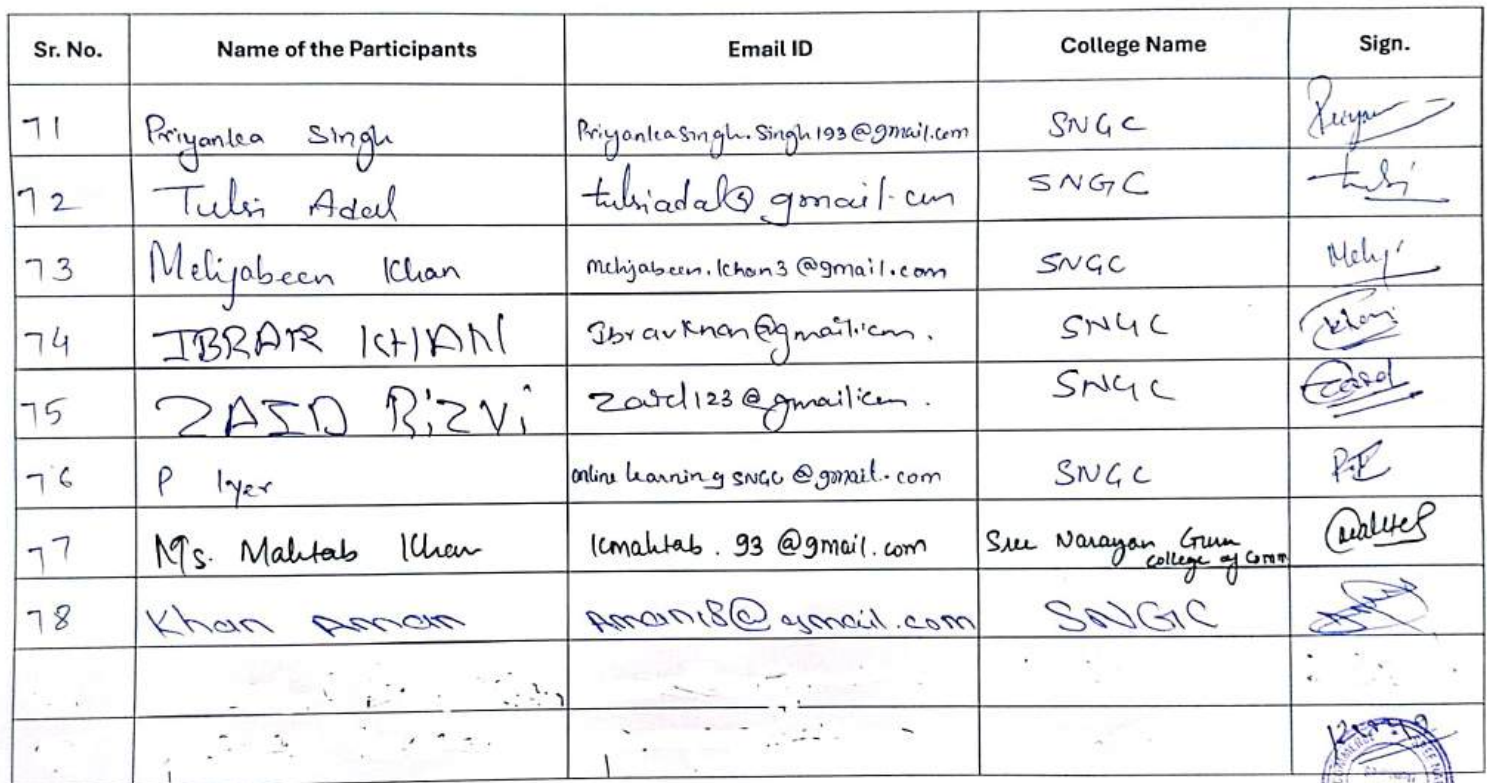 Sr. No. Name of the Participants Email ID College Name Sign.
71 Priyanka Singh Priyankasingh.Singh193@gmail.com SNGC Priyan
72 Tulsi Adal tulsiadal@gmail.com SNGC tulsi
73 Mehjabeen Khan mehjabeen.khan3@gmail.com SNGC Mehj
74 IBRAR KHAN Ibravkhan@gmail.com. SNGC Khan
75 ZAID Rizvi Zaid123@gmail.com. SNGC
76 P Iyer online learning SNGC @gmail.com SNGC P.I
77 Ms. Mahtab Khan kmahtab.93@gmail.com Sree Narayan Guru
College of Comm
78 Khan Aman Aman18@gmail.com SNGC